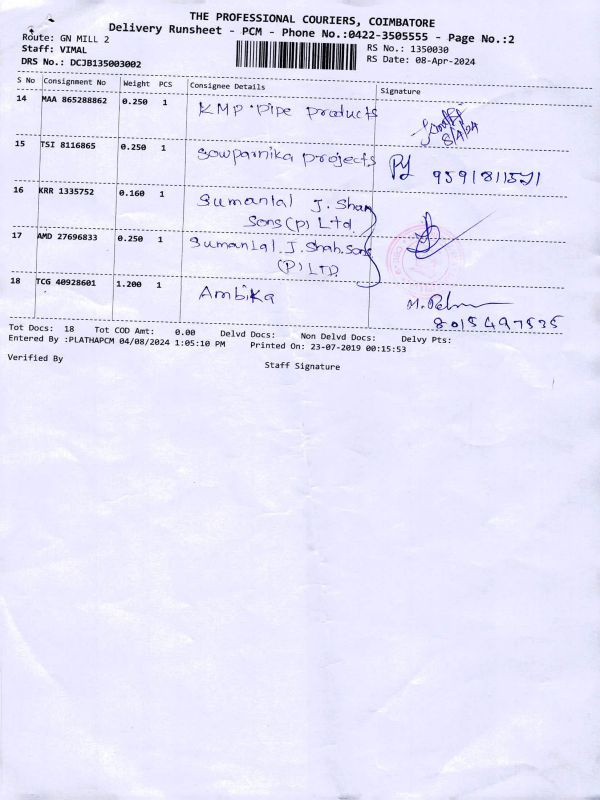 THE PROFESSIONAL COURIERS, COIMBATORE
Delivery Runsheet - PCM - Phone No.:0422-3505555 - Page No.:2
Route: GN MILL 2
RS No.: 1350030
Staff: VIMAL
RS Date: 08-Apr-2024
DRS No.: DCJB135003002
S No Consignment No Weight PCS Consignee Details Signature
14 MAA 865288862 0.250 1 KMP Pipe products
8/4/24
15 TSI 8116865 0.250 1 Sowparnika projects
16 KRR 1335752 0.160 1 Sumanlal J. Shah
Sons (P) Ltd
17 AMD 27696833 0.250 1 Sumanlal. J. Shah. Sons
(P) LTD
18 TCG 40928601 1.200 1 Ambika
8015497535
Tot Docs: 18 Tot COD Amt: 0.00 Delvd Docs: Non Delvd Docs: Delvy Pts:
Entered By :PLATHAPCM 04/08/2024 1:05:10 PM Printed On: 23-07-2019 00:15:53
Verified By
Staff Signature